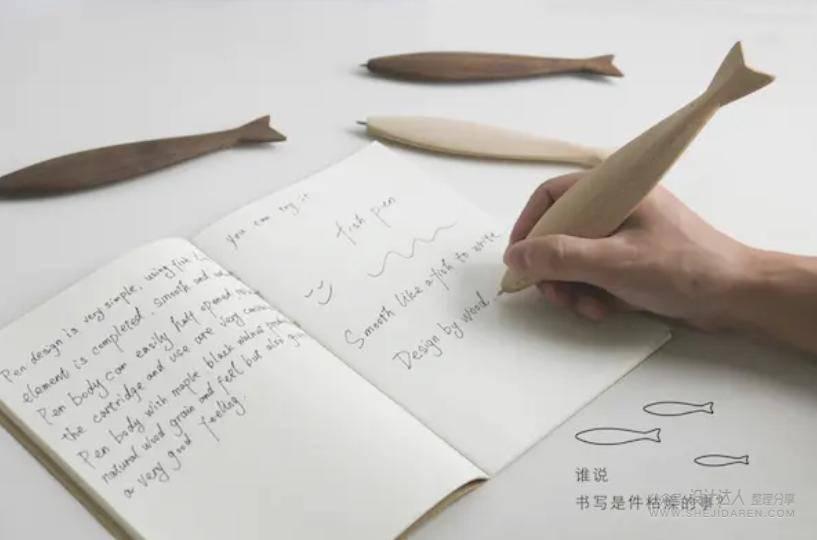 Pen design is very simple. using fish
element is completed. smooth and
Pen body can easily half opened
the cartridge and use are very
Pen body with maple black walnut
natural wood grain and feel but also
a very good feeling.
you can try it
fish pen
Smooth like a fish to write
Design by wood.
谁说
书写是件枯燥的事?
设计达人 整理分享
WWW.SHEJIDAREN.COM